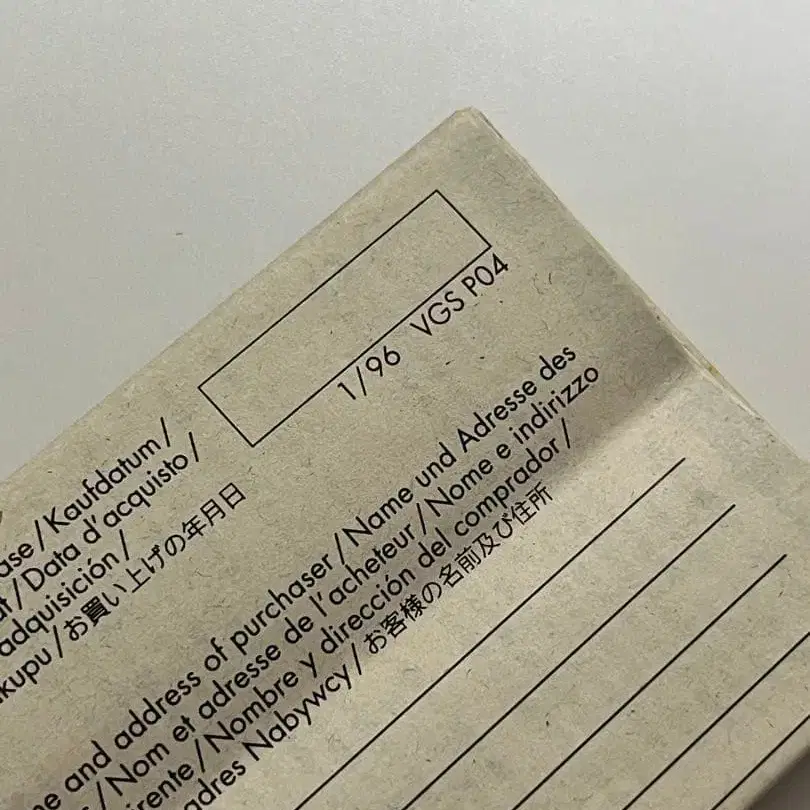 1/96 VGS P04
/Kaufdatum/
/Data d'acquisto/
adquisición/
/お買い上げの年月日
and address of purchaser/Name und Adresse des
/Nom et adresse de l'acheteur/Nome e indirizzo
/Nombre y dirección del comprador/
Nabywcy/お客様の名前及び住所